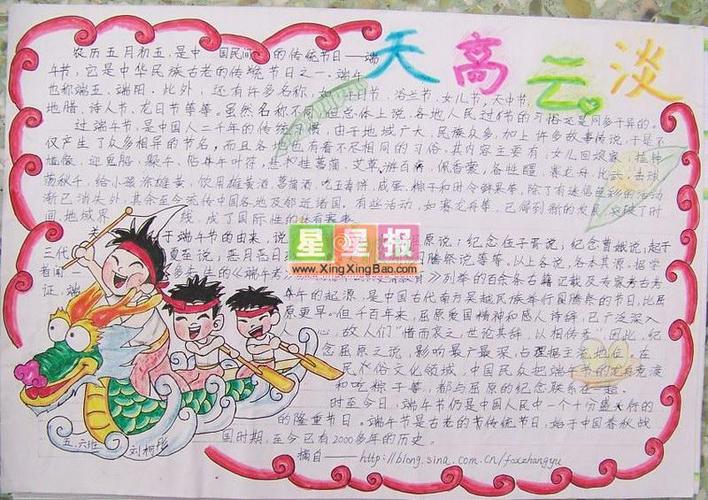 天高云淡
农历五月初五,是中国民间的传统节日——端
午节,它是中华民族古老的传统节日之一。端午
也称端五,端阳。此外,还有许多名称,如:午日节、浴兰节、女儿节,天中节、
地腊、诗人节、龙日节等等。虽然名称不同,但总体上说,各地人民过节的习俗还是同多于异的。
过端午节,是中国人二千年的传统习惯,由于地域广大,民族众多,加上许多故事传说,于是不
仅产生了众多相异的节名,而且各地也有着不尽相同的习俗。其内容主要有:女儿回娘家,挂钟
馗像,迎鬼船、躲午、帖午叶符,悬挂菖蒲、艾草,游百病,佩香囊,备牲醴,赛龙舟,比武,击球,
荡秋千,给小孩涂雄黄,饮用雄黄酒、菖蒲酒,吃五毒饼、咸蛋、粽子和时令鲜果等,除了有迷信色彩的活动
渐已消失外,其余至今流传中国各地及邻近诸国。有些活动,如赛龙舟等,已得到新的发展,突破了时
间、地域界线,成了国际性的体育赛事。
关于端午节的由来,说
屈原说;纪念伍子胥说;纪念曹娥说;起于
三代夏至说;恶月恶日
图腾祭说等等。以上各说,各本其源。据学
者闻一多先生的《端午考》
列举的百余条古籍记载及专家考古考
证,端午的起源,是中国古代南方吴越民族举行图腾祭的节日,比屈
原更早。但千百年来,屈原爱国精神和感人诗辞,已广泛深入
心,故人们"惜而哀之,世论其辞,以相传焉",因此,纪
念屈原之说,影响最广最深,占据主流地位。在
民俗文化领域,中国民众把端午节的龙舟竞渡
和吃粽子等,都与屈原的纪念联系在一起。
时至今日,端午节仍是中国人民中一个十分盛大行的
的隆重节日。端午节是古老的节传统节日,始于中国春秋战
国时期,至今已有2000多年的历史。
摘自——http://blong.sina.com.cn/foxzhangyu
五、六班 刘柯彤
星星报
www.XingXingBao.com